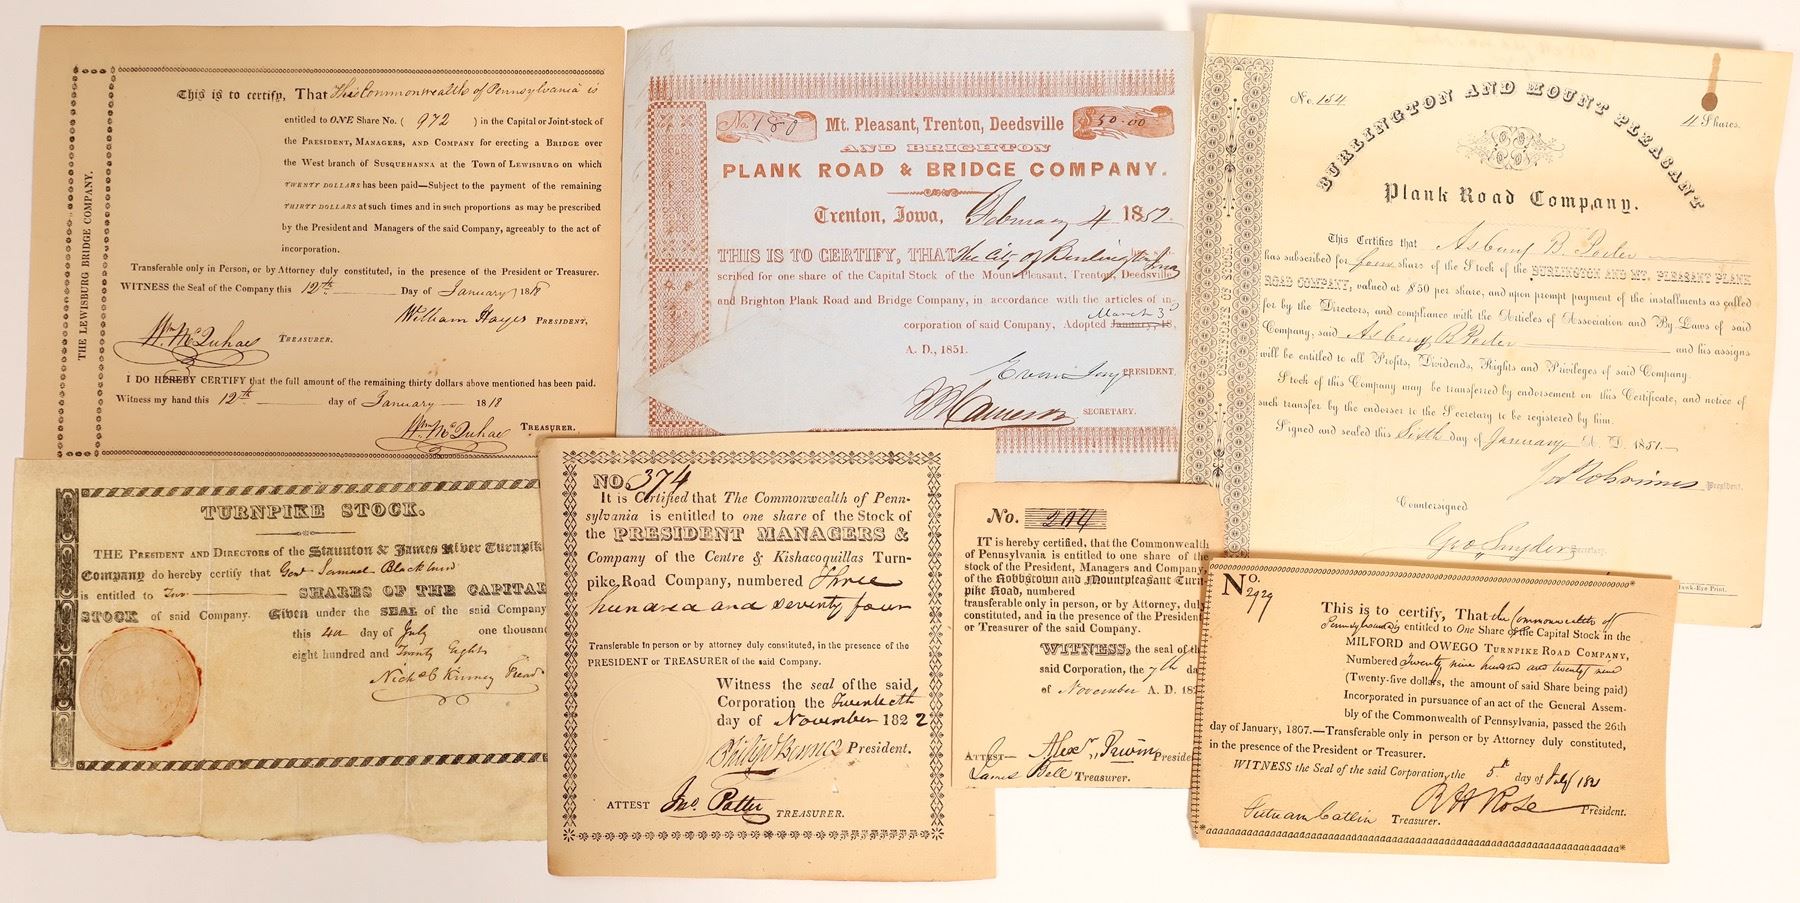 THE LEWISBURG BRIDGE COMPANY.
This is to certify, That The Commonwealth of Pennsylvania is
entitled to ONE Share No. ( 972 ) in the Capital or Joint-stock of
the PRESIDENT, MANAGERS, AND COMPANY for erecting a BRIDGE over
the West branch of SUSQUEHANNA at the Town of LEWISBURG on which
TWENTY DOLLARS has been paid—Subject to the payment of the remaining
THIRTY DOLLARS at such times and in such proportions as may be prescribed
by the President and Managers of the said Company, agreeably to the act of
incorporation.
Transferable only in Person, or by Attorney duly constituted, in the presence of the President or Treasurer.
WITNESS the Seal of the Company this 12th Day of January 1818
William Hayes PRESIDENT,
Wm McQuhae TREASURER.
I DO HEREBY CERTIFY that the full amount of the remaining thirty dollars above mentioned has been paid.
Witness my hand this 12th day of January 1818
Wm McQuhae TREASURER.
No. 180 Mt. Pleasant, Trenton, Deedsville $50.00
AND BRIGHTON
PLANK ROAD & BRIDGE COMPANY.
Trenton, Iowa, February 4 1852
THIS IS TO CERTIFY, THAT The City of Burlington
scribed for one share of the Capital Stock of the Mount Pleasant, Trenton, Deedsville
and Brighton Plank Road and Bridge Company, in accordance with the articles of in-
March 3d
corporation of said Company, Adopted January, 18,
A. D., 1851.
PRESIDENT
Cameron SECRETARY.
No. 154
4 Shares.
BURLINGTON AND MOUNT PLEASANT
Plank Road Company.
This Certifies that Asbury B. Porter
has subscribed for four share of the Stock of the BURLINGTON AND MT. PLEASANT PLANK
ROAD COMPANY, valued at $50 per share, and upon prompt payment of the installments as called
for by the Directors, and compliance with the Articles of Association and By-Laws of said
Company, said Asbury B Porter and his assigns
will be entitled to all Profits, Dividends, Rights and Privileges of said Company.
Stock of this Company may be transferred by endorsement on this Certificate, and notice of
such transfer by the endorser to the Secretary to be registered by him.
Signed and sealed this Sixth day of January A. D. 1851
President.
Countersigned
Geo Snyder Secretary.
Hawk-Eye Print.
TURNPIKE STOCK.
THE PRESIDENT AND DIRECTORS of the Staunton & James River Turnpike
Company do hereby certify that Genl Samuel Blackburn
is entitled to Two SHARES OF THE CAPITAL
STOCK of said Company. Given under the SEAL of the said Company
this 4th day of July one thousand
eight hundred and Twenty Eight
Nichs C Kinney Presd
NO. 374
It is Certified that The Commonwealth of Penn-
sylvania is entitled to one share of the Stock of
the PRESIDENT MANAGERS &
Company of the Centre & Kishacoquillas Turn-
pike, Road Company, numbered three
hundred and seventy four
Transferable in person or by attorney duly constituted, in the presence of the
PRESIDENT or TREASURER of the said Company.
Witness the seal of the said
Corporation the Twentieth
day of November 1822
Philip Benner President.
ATTEST Jno. Potter TREASURER.
No. 204
IT is hereby certified, that the Commonwealth
of Pennsylvania is entitled to one share of the
stock of the President, Managers and Company,
of the Robbstown and Mountpleasant Turn-
pike Road, numbered
transferable only in person, or by Attorney, duly
constituted, and in the presence of the President
or Treasurer of the said Company.
WITNESS, the seal of the
said Corporation, the 7th da
of November A. D. 182
Alexr Irwin President
ATTEST—
James Bell Treasurer.
No. 2929
This is to certify, That the Commonwealth of
Pennsylvania is entitled to One Share of the Capital Stock in the
MILFORD and OWEGO TURNPIKE ROAD COMPANY,
Numbered Twenty nine hundred and twenty nine
(Twenty-five dollars, the amount of said Share being paid)
Incorporated in pursuance of an act of the General Assem-
bly of the Commonwealth of Pennsylvania, passed the 26th
day of January, 1807.—Transferable only in person or by Attorney duly constituted,
in the presence of the President or Treasurer.
WITNESS the Seal of the said Corporation, the 5th day of July 182
R H Rose President.
Putnam Catlin Treasurer.